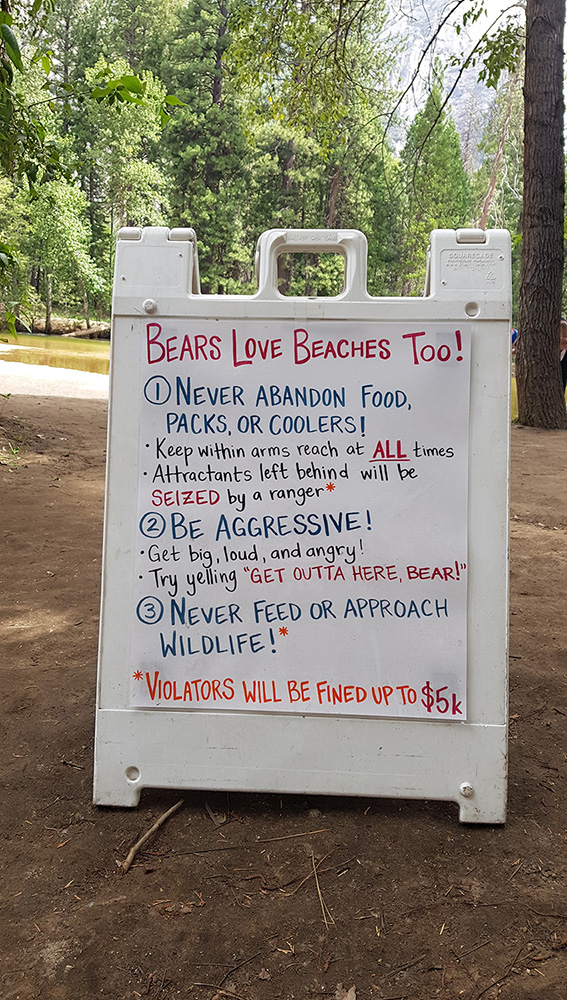 BEARS LOVE BEACHES TOO!
① NEVER ABANDON FOOD,
PACKS, OR COOLERS!
· Keep within arms reach at ALL times
· Attractants left behind will be
SEIZED by a ranger*
② BE AGGRESSIVE!
· Get big, loud, and angry!
· Try yelling "GET OUTTA HERE, BEAR!"
③ NEVER FEED OR APPROACH
WILDLIFE!*
*VIOLATORS WILL BE FINED UP TO $5k